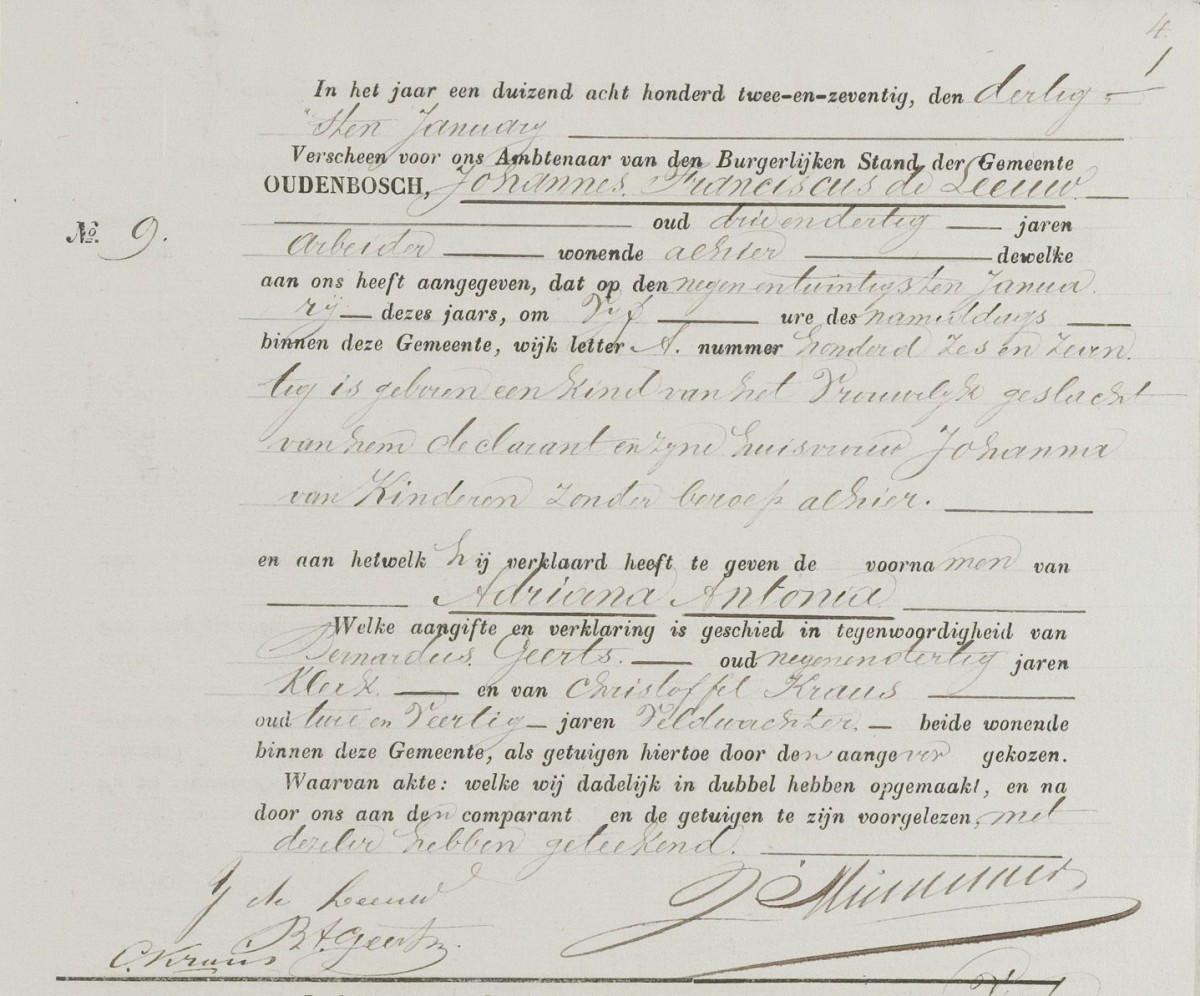 4.
1
In het jaar een duizend acht honderd twee-en-zeventig, den dertig-
sten January
Verscheen voor ons Ambtenaar van den Burgerlijken Stand der Gemeente
OUDENBOSCH, Johannes Franciscus de Leeuw
oud drieendertig jaren
No. 9. Arbeider wonende alhier dewelke
aan ons heeft aangegeven, dat op den negenentwintigsten Janua
rij dezes jaars, om Vyf ure des namiddags
binnen deze Gemeente, wijk letter A. nummer honderd zes en zeven
tig is geboren een kind van het Vrouwelyk geslacht
van hem declarant en zyne huisvrouw Johanna
van Kinderen zonder beroep alhier.
en aan hetwelk hij verklaard heeft te geven de voornamen van
Adriana Antonia
Welke aangifte en verklaring is geschied in tegenwoordigheid van
Bernardus Geerts. oud negenendertig jaren
Klerk en van Christoffel Kraus
oud twee en Veertig jaren Veldwachter beide wonende
binnen deze Gemeente, als getuigen hiertoe door den aangever gekozen.
Waarvan akte: welke wij dadelijk in dubbel hebben opgemaakt, en na
door ons aan den comparant en de getuigen te zijn voorgelezen, met
dezelve hebben geteekend.
J de Leeuw
Geerts
C. Kraus